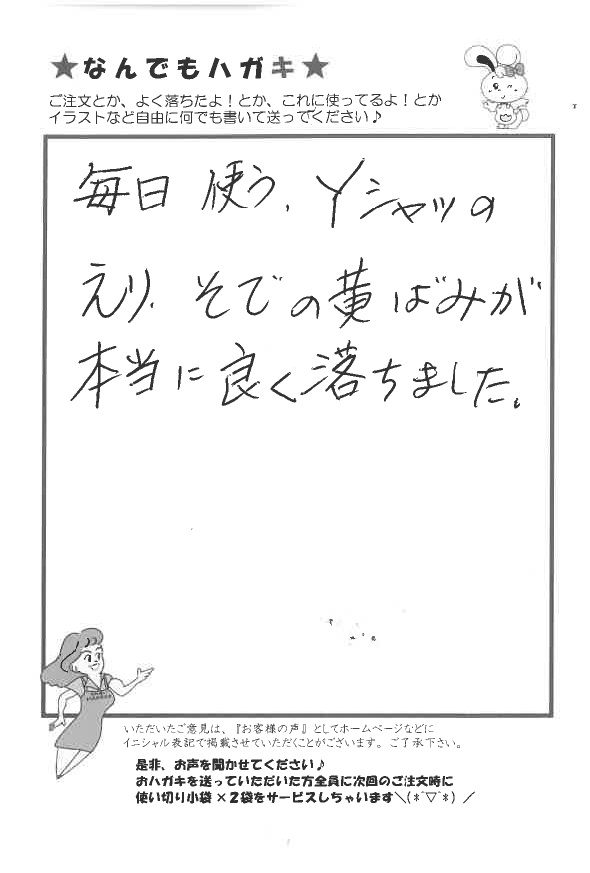 ★なんでもハガキ★
ご注文とか、よく落ちたよ！とか、これに使ってるよ！とか
イラストなど自由に何でも書いて送ってください♪
毎日使う、Yシャツの
えり、そでの黄ばみが
本当に良く落ちました。
いただいたご意見は、『お客様の声』としてホームページなどに
イニシャル表記で掲載させていただくことがございます。ご了承下さい。
是非、お声を聞かせてください♪
おハガキを送っていただいた方全員に次回のご注文時に
使い切り小袋×2袋をサービスしちゃいます＼(*´▽`*)／